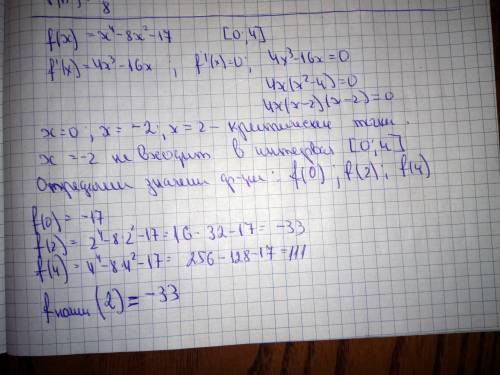 8
f(x) = x⁴-8x²-17 [0;4]
f'(x)=4x³-16x ; f'(x)=0; 4x³-16x=0
4x(x²-4)=0
4x(x-2)(x-2)=0
x=0; x=-2; x=2 - критически точки.
x=-2 не входит в интервал [0;4]
Определим значени ф-ции: f(0); f(2); f(4)
f(0) = -17
f(2) = 2⁴-8·2²-17=16-32-17= -33
f(4) = 4⁴-8·4²-17= 256-128-17=111
f наим (2) = -33